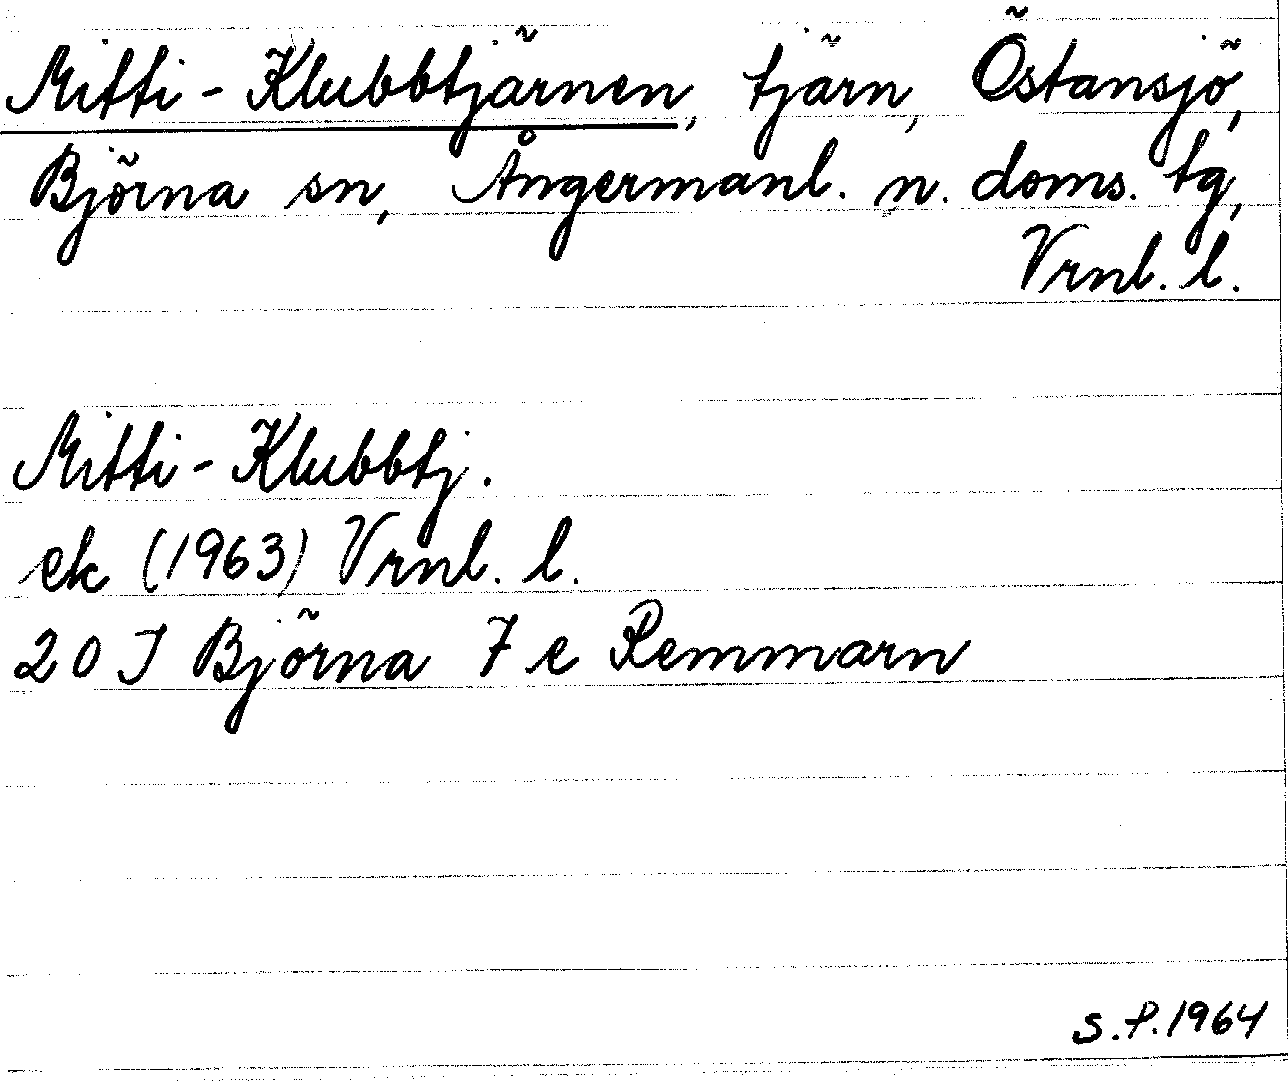 Mitti-Klubbtjärnen, tjärn, Östansjö,
Björna sn, Ångermanl. n. doms. tg,
Vrnl. l.
Mitti-Klubbtj.
ek (1963) Vrnl. l.
20 J Björna 7 e Remmarn
S.P. 1964